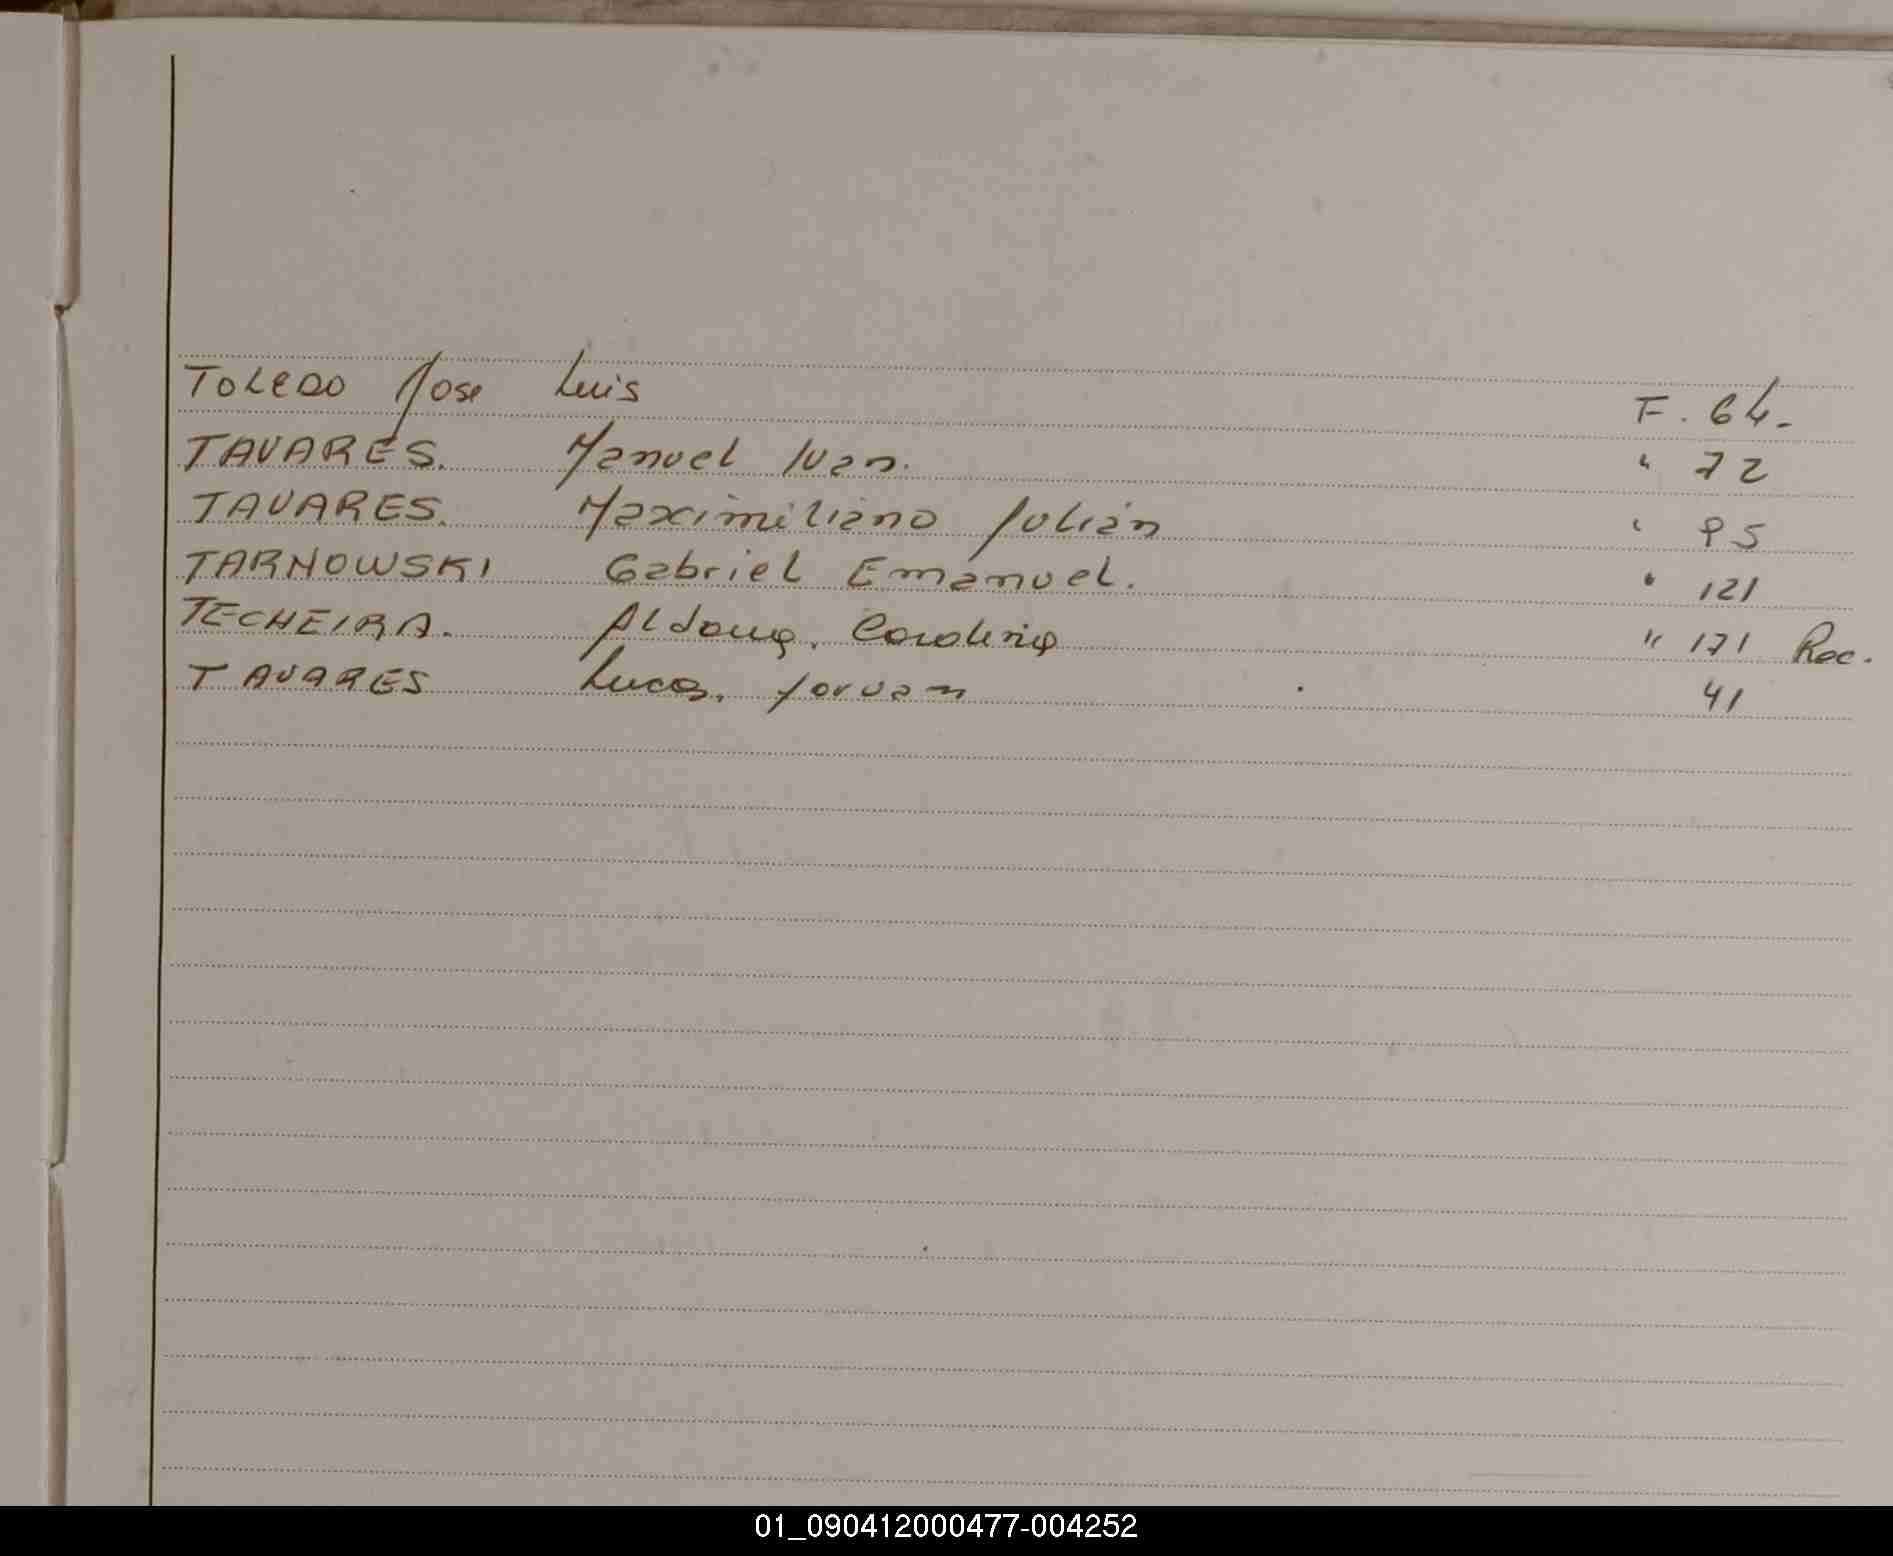 Toledo Jose Luis F. 64.
TAVARES. Manuel Ivan. " 72
TAVARES. Maximiliano Julián " 95
TARNOWSKI Gabriel Emanuel. " 121
TECHEIRA. Aldana, Carolina " 171 Rec.
TAVARES Lucas, 41
01_090412000477-004252